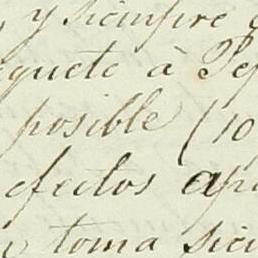 , y siempre
quete à Pep
posible (10
efectos apr
toma sien